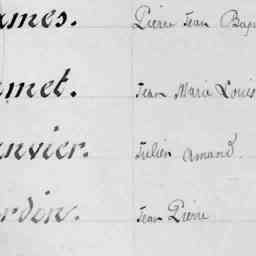 ames. Pierre Jean Bap
amet. Jean Marie Louis
anvier. Julien Amand.
ardin. Jean Pierre